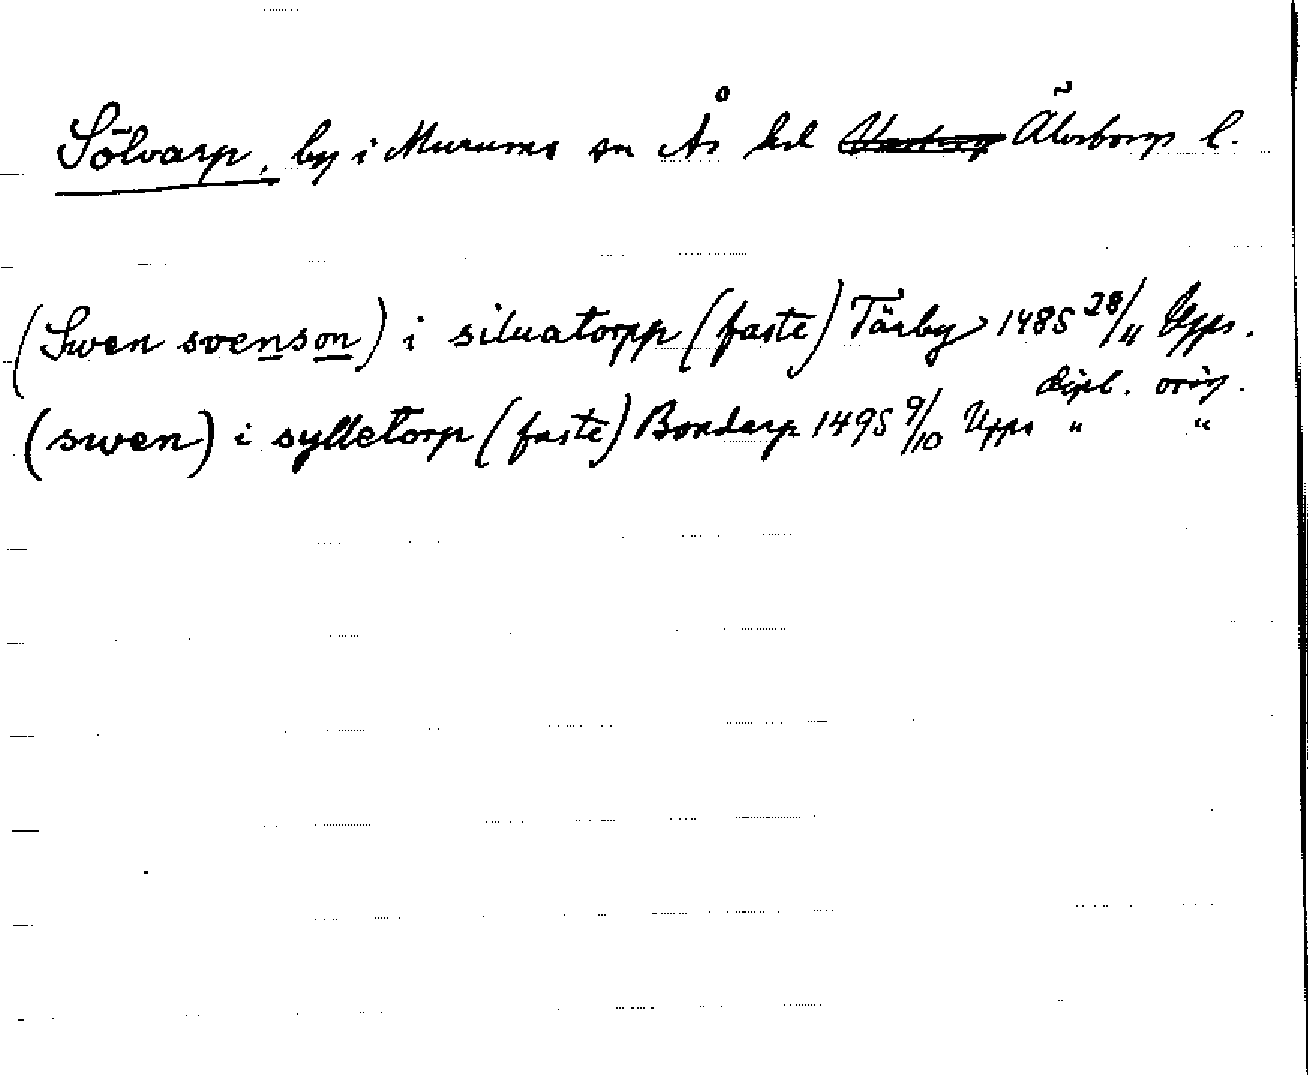 Sölvarp, by i Murums sn Ås hd Älvsborgs l.
(Swen svenson) i siluatorpp (faste) Tärby 1485 28/11 Upps.
dipl. orig.
(swen) i sylletorp (faste) Bondarp 1495 9/10 Upps " "